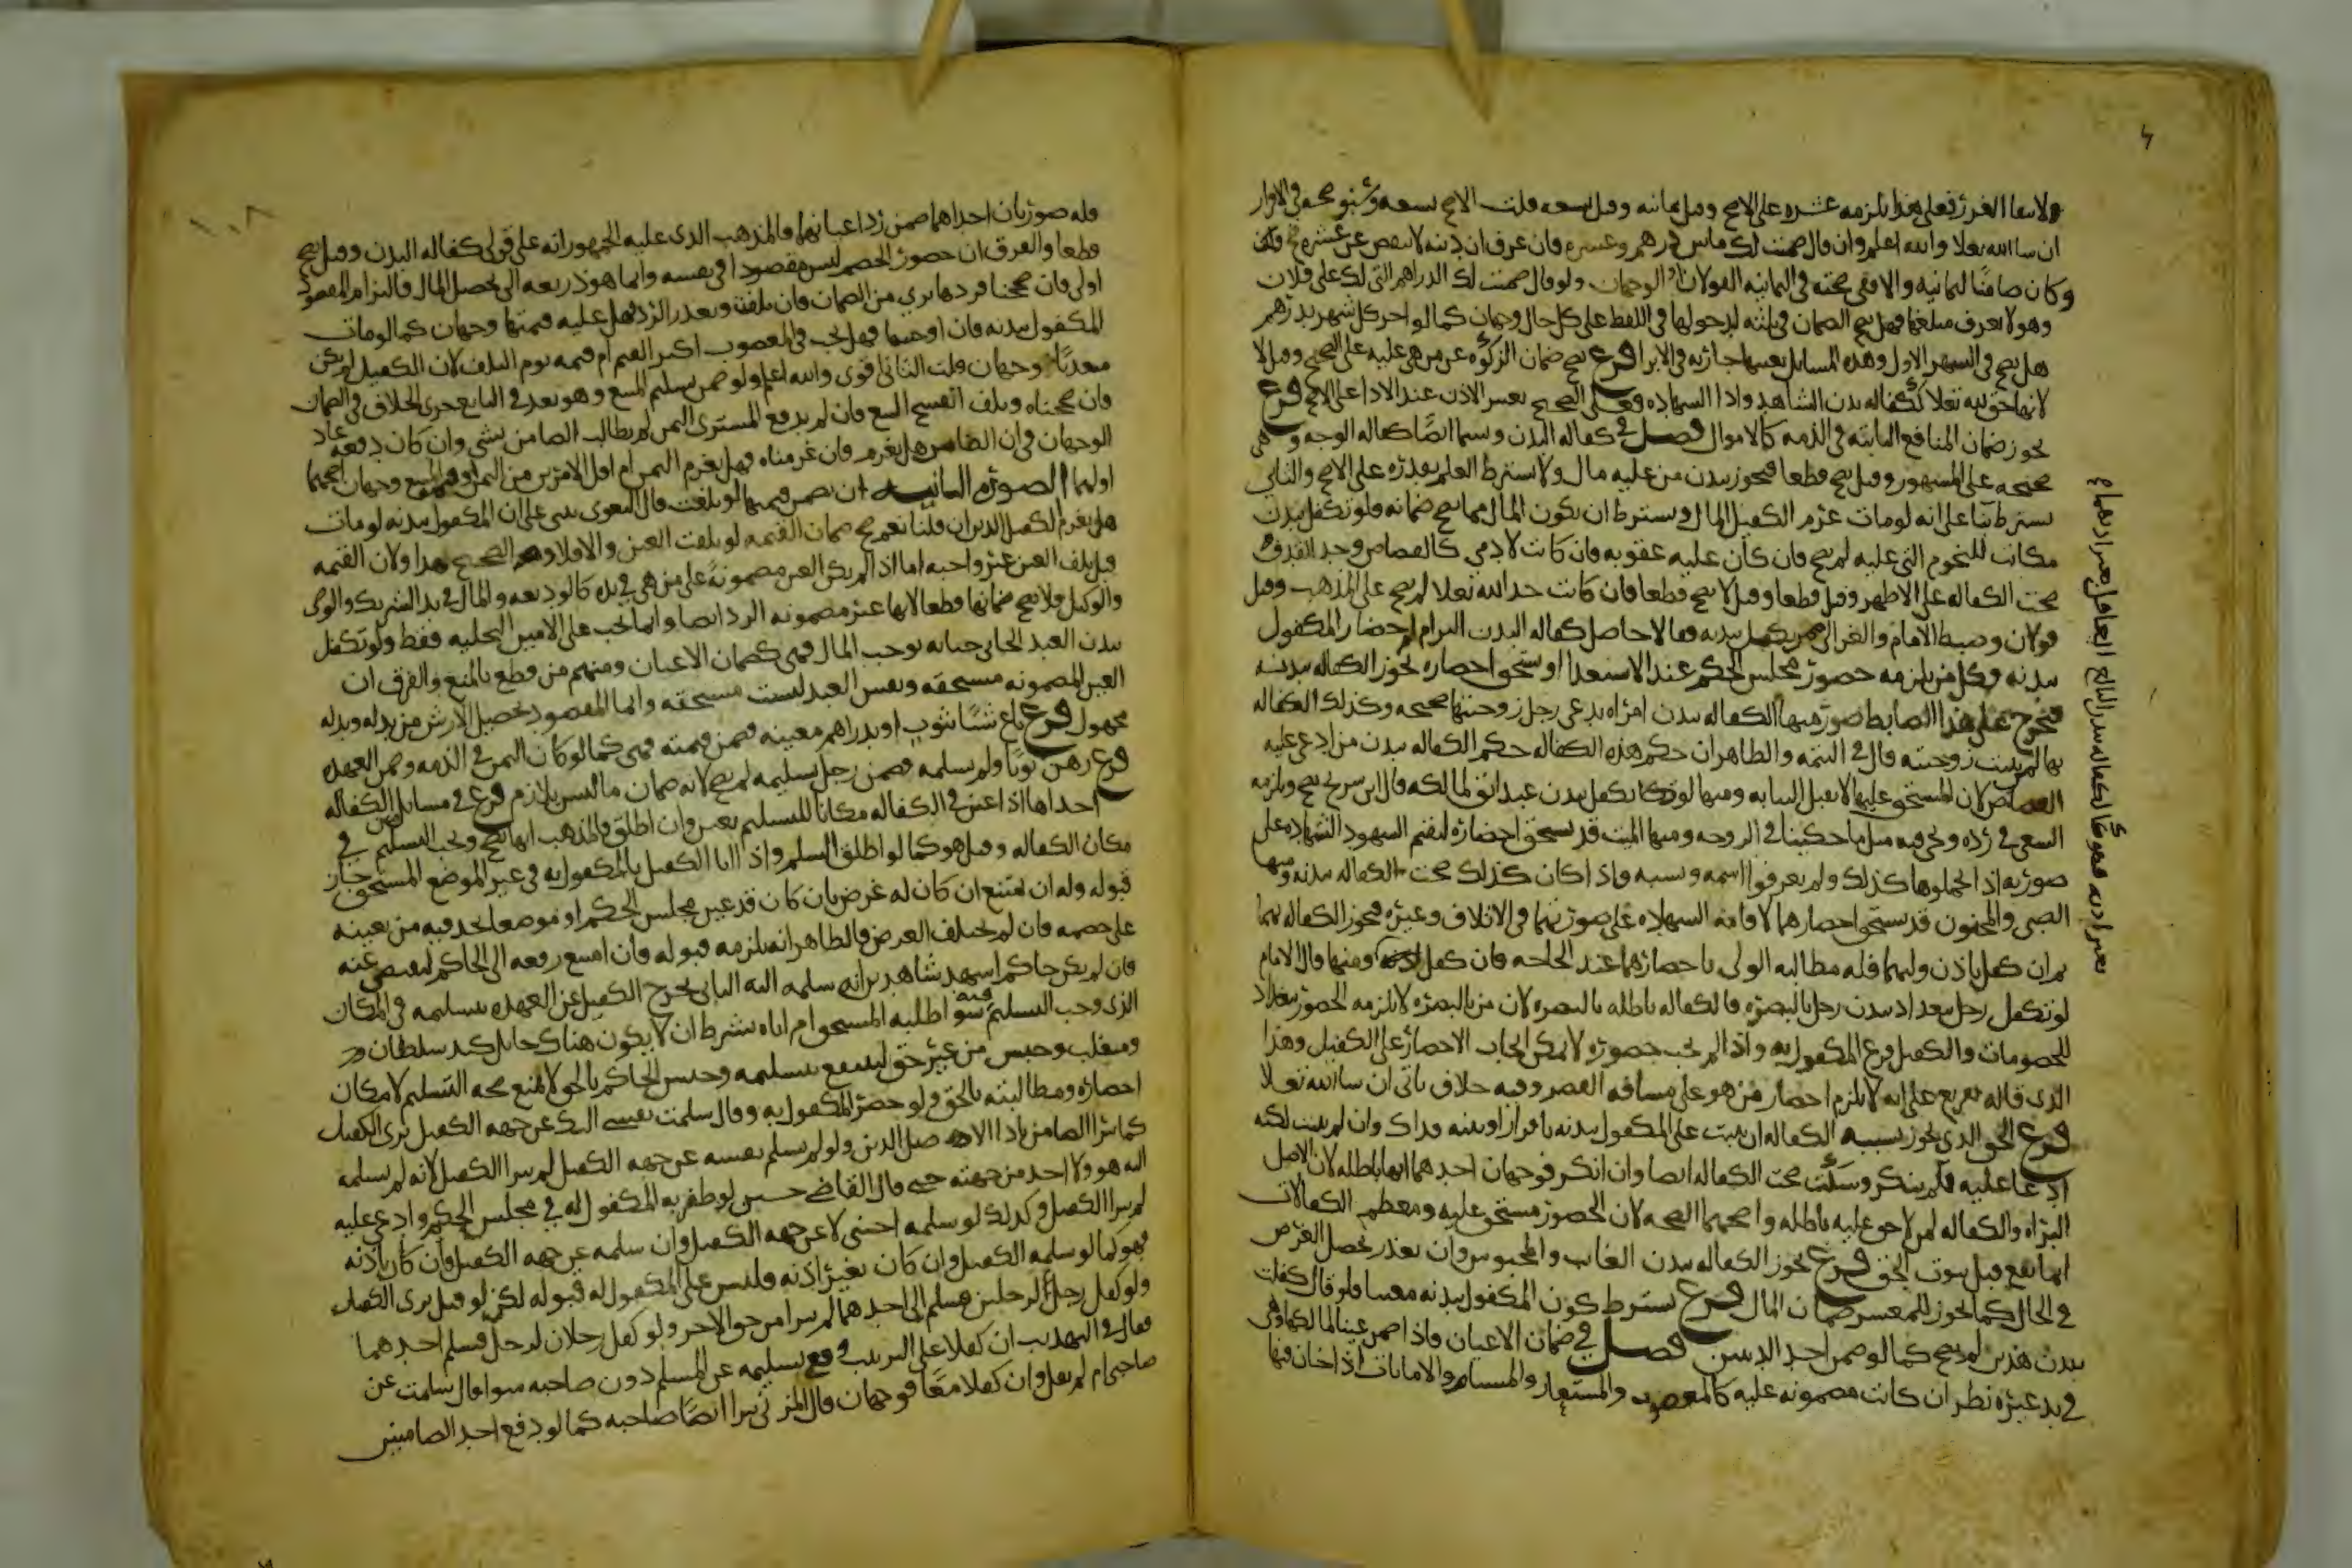 ولانتفا الغرر فعلى هذا يلزمه عشره على الاصح وقيل ثمانيه وقيل تسعه قلت الاصح تسعه
ان شا الله تعلا والله اعلم وان قال ضمنت لك ما بين درهم وعشره فان عرف ان دينه لا ينقص عن عشره صح
وكان ضامنًا لثمانيه والا ففي صحته في الثمانيه القولان او الوجهان ولو قال ضمنت لك الدراهم التي لك على فلان
وهو لا يعرف مبلغها فهل يصح الضمان في ثلثه لدخولها في اللفظ على كل حال وجهان كما لو اجر كل شهر بدرهم
هل يصح في الشهر الاول وهذه المسايل بعينها جاريه في الابرا فرع يصح ضمان الزكوه عن من هي عليه على الصحيح وقيل لا
لانها حق لله تعلا ككفاله بدن الشاهد لادا الشهاده وعلى الصحيح يعتبر الاذن عند الادا على الاصح فرع
يجوز ضمان المنافع الثابته في الذمه كالاموال فصل في كفاله البدن وتسما ايضًا كفاله الوجه وهي
صحيحه على المشهور وقيل تصح قطعا فتجوز ببدن من عليه مال ولا يشترط العلم بقدره على الاصح والثاني
يشترط بنا على انه لو مات غرم الكفيل المال ويشترط ان يكون المال مما يصح ضمانه فلو تكفل ببدن
مكاتب للنجوم التي عليه لم يصح فان كان عليه عقوبه فان كانت لادمي كالقصاص وحد القذف
صحت الكفاله على الاظهر وقيل قطعا وقيل لا تصح قطعا فان كانت حد الله تعلا لم يصح على المذهب وقيل
قولان وضبط الامام والغزالي من يكفل ببدنه فقالا حاصل كفاله البدن التزام احضار المكفول
ببدنه وكل من يلزمه حضور مجلس الحكم عند الاستعدا او يستحق احضاره تجوز الكفاله ببدنه
فتخرج على هذا الضابط صور منها الكفاله ببدن امراه يدعي رجل زوجيتها صحيحه وكذلك الكفاله
بها لمن ثبتت زوجيته قال في التتمه والظاهر ان حكم هذه الكفاله حكم الكفاله ببدن من ادعي عليه
القصاص لان المستحق عليها لا يقبل النيابه ومنها لو تكفل ببدن عبد ابق لمالكه قال ابن سريج يصح ويلزمه
السعي في رده ويجي فيه مثل ما حكينا في الزوجه ومنها الميت قد يستحق احضاره ليقيم الشهود الشهاده على
صورته اذا تحملوها كذلك ولم يعرفوا اسمه ونسبه واذا كان كذلك صحت الكفاله ببدنه ومنها
الصبي والمجنون قد يستحق احضارهما لاقامه الشهاده على صورتهما في الاتلاف وغيره فتجوز الكفاله بهما
ثم ان كفل باذن وليهما فله مطالبه الولي باحضارهما عند الحاجه فان كفل ومنها قال الامام
لو تكفل رجل ببغداد ببدن رجل بالبصره فالكفاله باطله لان من بالبصره لا يلزمه الحضور ببغداد
للخصومات والكفيل فرع المكفول به واذا لم يجب حضوره لا يمكن ايجاب الاحضار على الكفيل وهذا
الذي قاله تفريع على انه لا يلزم احضار من هو على مسافه القصر وفيه خلاف ياتي ان شا الله تعلا
فرع الحق الذي تجوز بسببه الكفاله ان يثبت على المكفول ببدنه باقرار او بينه فذاك وان لم يثبت لكنه
ادعا عليه فلم ينكر وسكت صحت الكفاله ايضا وان انكر فوجهان احدهما انها باطله لان الاصل
البراه والكفاله لمن لا حق عليه باطله واصحهما الصحه لان الحضور مستحق عليه ومعظم الكفالات
انما تقع قبل ثبوت الحق فرع تجوز الكفاله ببدن الغايب والمحبوس وان تعذر تحصيل الغرض
في الحال كما تجوز للمعسر ضمان المال فرع يشترط كون المكفول ببدنه معينا فلو قال كفلت
ببدن هذين لم يصح كما لو ضمن احد الدينين فصل في ضمان الاعيان فاذا ضمن عينا لمالكها وهي
في يد غيره نظر ان كانت مضمونه عليه كالمغصوب والمستعار والمستام والامانات اذا خان فيها
فله صورتان احداهما ضمن رد اعيانها فالمذهب الذي عليه الجمهور انه على قولي كفاله البدن وقيل يصح
قطعا والفرق ان حضور الخصم ليس مقصودا في نفسه وانما هو ذريعه الى تحصيل المال فالتزام المقصود
اولى فان صححنا فردها بري من الضمان فان تلفت وتعذر الرد فهل عليه قيمتها وجهان كما لو مات
المكفول ببدنه فان اوجبنا فهل تجب في المغصوب اكثر القيم ام قيمه يوم التلف لان الكفيل لم يكن
متعديًا وجهان قلت الثاني اقوى والله اعلم ولو ضمن تسليم المبيع وهو بعد في البايع جرى الخلاف في الضمان
وان صححناه وتلف انفسخ البيع فان لم يدفع المشتري الثمن لم يطالب الضامن بشي وان كان دفعه عاد
الوجهان في ان الضامن هل يغرم فان غرمناه فهل يغرم الثمن ام اقل الامرين من الثمن وقيمه المبيع وجهان اصحهما
اولهما الصوره الثانيه ان يضمن قيمتها لو تلفت قال البغوي يبنى على ان المكفول ببدنه لو مات
هل يغرم الكفيل الدين ان قلنا نعم صح ضمان القيمه لو تلفت العين والا فلا وهو الصحيح هذا ولان القيمه
قبل تلف العين غير واجبه اما اذا لم يكن العين مضمونهً على من هي في يده كالوديعه والمال في يد الشريك والوصي
والوكيل فلا يصح ضمانها قطعا لانها غير مضمونه الرد ايضا وانما يجب على الامين التخليه فقط ولو تكفل
ببدن العبد الجاني جنايه توجب المال فهي كضمان الاعيان ومنهم من قطع بالمنع والفرق ان
العين المضمونه مستحقه ونفس العبد ليست مستحقه وانما المقصود تحصيل الارش من بدله وبدله
مجهول فرع باع شيًا بثوب او بدراهم معينه فضمن قيمته فهي كما لو كان الثمن في الذمه وضمن العهده
فرع رهن ثوبًا ولم يسلمه فضمن رجل تسليمه لم يصح لانه ضمان ما ليس بلازم فرع في مسايل الكفاله
احداها اذا عين في الكفاله مكانا للتسليم تعين وان اطلق فالمذهب انها تصح ويجب التسليم في
مكان الكفاله وقيل هو كما لو اطلق السلم واذا اتا الكفيل بالمكفول به في غير الموضع المستحق جاز
قبوله وله ان يمتنع ان كان له غرض بان كان قد عين مجلس الحكم او موضعا يجد فيه من يعينه
على خصمه فان لم يختلف الغرض فالظاهر انه يلزمه قبوله فان امتنع رفعه الى الحاكم ليقبض عنه
فان لم يكن حاكم اشهد شاهدين انه سلمه اليه الثاني يخرج الكفيل عن العهده بتسليمه في المكان
الذي وجب التسليم فيه سوا طلبه المستحق ام اباه بشرط ان لا يكون هناك حايل كيد سلطان
ومتغلب وحبس من غير حق ليمنع تسليمه وحبس الحاكم بالحق لا يمنع صحه التسليم لامكان
احضاره ومطالبته بالحق ولو حضر المكفول به وقال سلمت نفسي اليك عن جهه الكفيل بري الكفيل
كما يبرا الضامن باذا الاصيل الدين ولو لم يسلم نفسه عن جهه الكفيل لم يبرا الكفيل لانه لم يسلمه
اليه هو ولا احد من جهته حتى قال القاضي حسين لو ظفر به المكفول له في مجلس الحكم وادعى عليه
لم يبرا الكفيل وكذلك لو سلمه اجنبي لا عن جهه الكفيل وان سلمه عن جهه الكفيل فان كان باذنه
فهو كما لو سلمه الكفيل وان كان بغير اذنه فليس على المكفول له قبوله لكن لو قبل بري الكفيل
ولو كفل رجل لرجلين فسلم الى احدهما لم يبرا من حق الاخر ولو كفل رجلان لرجل فسلم احدهما
فقال في التهذيب ان كفلا على الترتيب وقع تسليمه عن المسلم دون صاحبه سوا قال سلمت عن
صاحبي ام لم يقل وان كفلا معًا فوجهان قال المزني يبرا ايضًا صاحبه كما لو دفع احد الضامنين